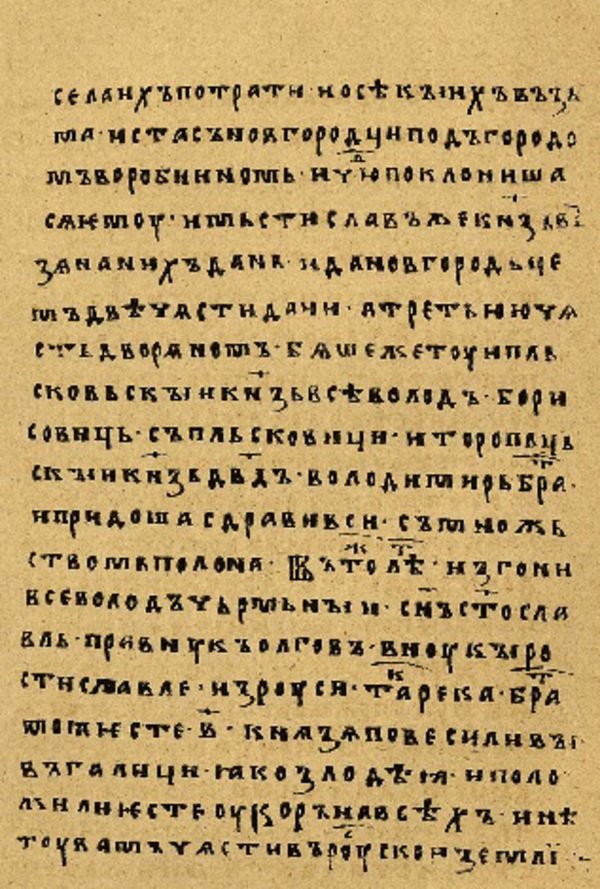 села ихъ потрати · и осѣкы ихъ възѧ
ша · и сташа новгородци подъ городо
мь воробииномь · и чюю поклониша
сѧ ѥмоу · и мьстиславъ же кнѧзь
взѧ на нихъ дань · и да новгородьче
мъ двѣ чѧсти дани · а третьюю чѧ
сть дворѧномъ · бѧше же тоу и пль
сковьскыи кнзь всѣволодъ · бори
совиць · съ пльсковици · и торопьць
скыи кнзь двдъ · володимирь бра ·
и придоша сдрави вси · съ множь
ствомь полона · Въ то лѣ · изгони
всеволодъ чьрмьныи · снъ стосла
вль · правнукъ олговъ · вноукы ро
стиславлѧ · из роуси · тако река · бра
та моѧ ѥсте · в҃ · кнѧзѧ повесили вы
въ галици · ꙗко злодѣꙗ · и поло
жили ѥсте оукоръ на всѣхъ · и нѣ
тоу вамъ чѧсти въ роускои земли ·